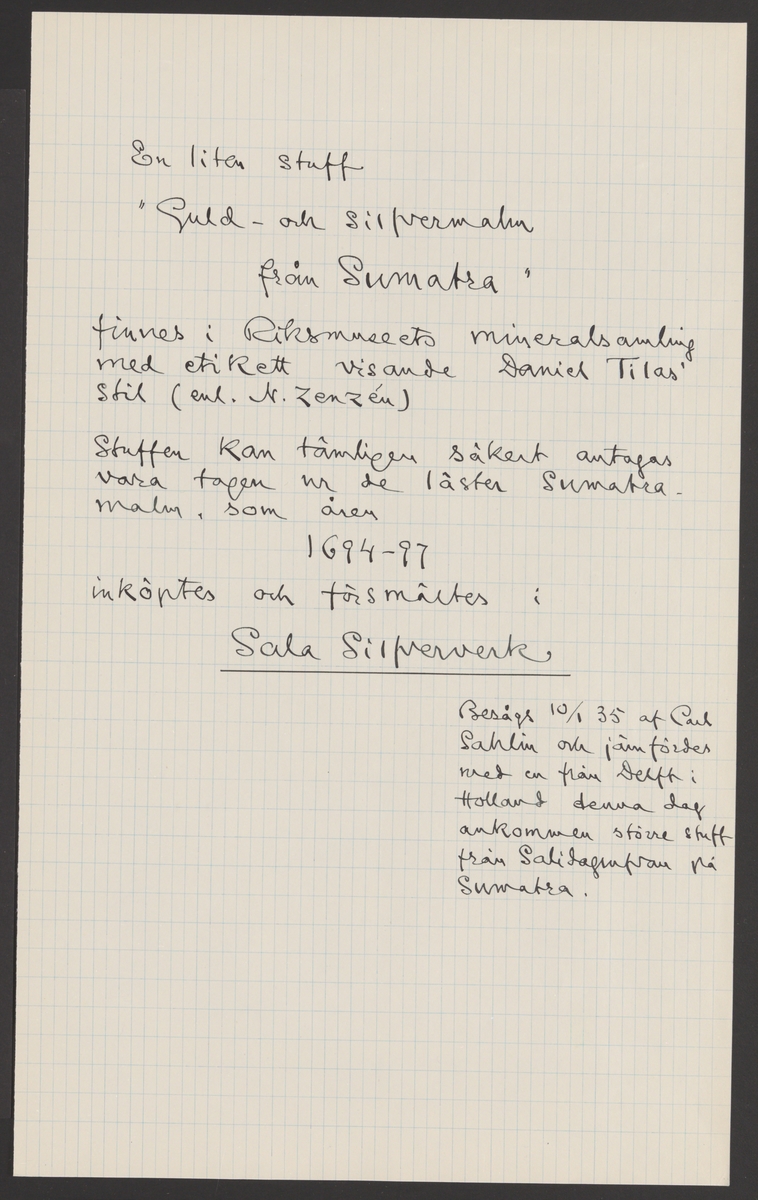 En liten stuff
"Guld- och silfvermalm
från Sumatra"
finnes i Riksmuseets mineralsamling
med etikett visande Daniel Tilas'
stil (enl. N. Zenzén)
Stuffen kan tämligen säkert antagas
vara tagen ur de läster Sumatra-
malm, som åren
1694-97
inköptes och försmältes i
Sala Silfververk
Besågs 10/1 35 af Carl
Sahlin och jämfördes
med en från Delft i
Holland denna dag
ankommen större stuff
från Salidagrufvan på
Sumatra.